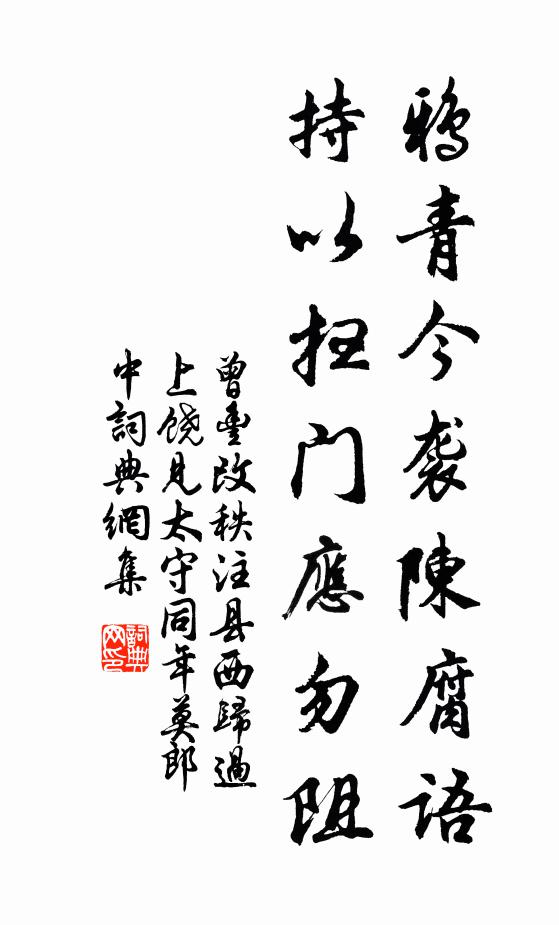 鴉青今袭陳腐語
持以扫門應勿阻
曾豐改秩注县西歸過
上饶見太守同年莫郎
中詞典網集
詞典网印